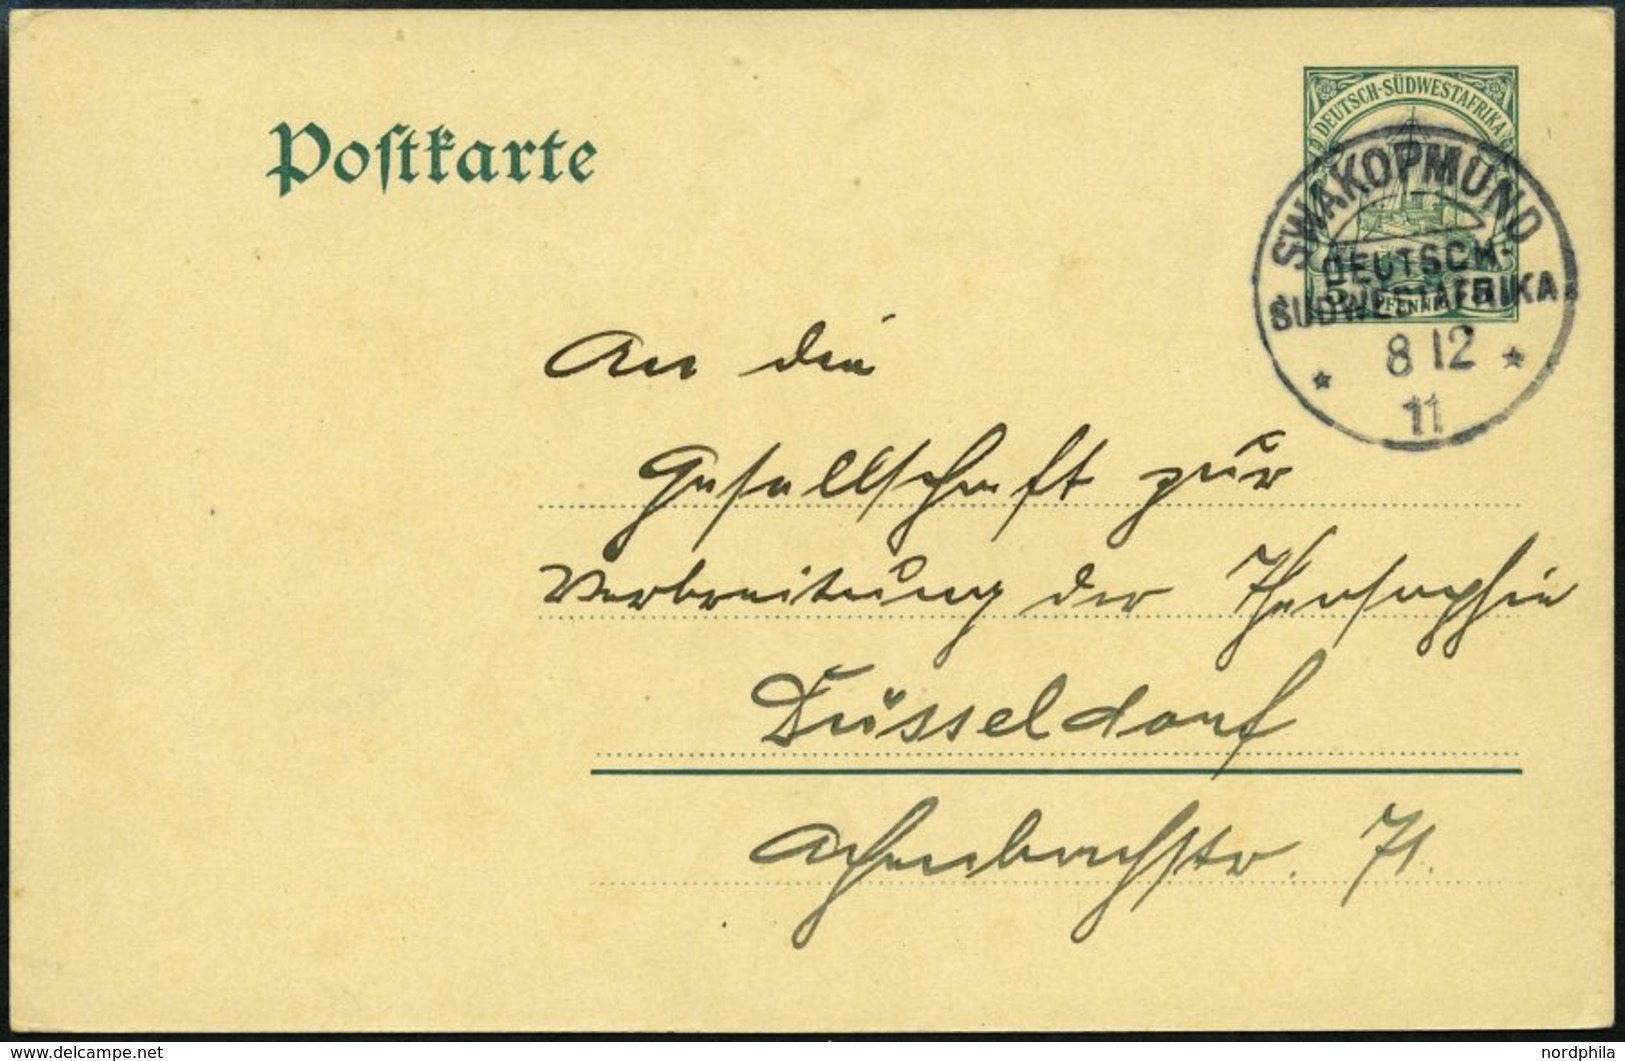 Postkarte
DEUTSCH-SÜDWESTAFRIKA
SWAKOPMUND
DEUTSCH-
SÜDWESTAFRIKA
5 PFENNIG 5
8 12
11
An die
Gesellschaft zur
Verbreitung der Theosophie
Düsseldorf
Achenbachstr. 71.
© www.delcampe.net
nordphila